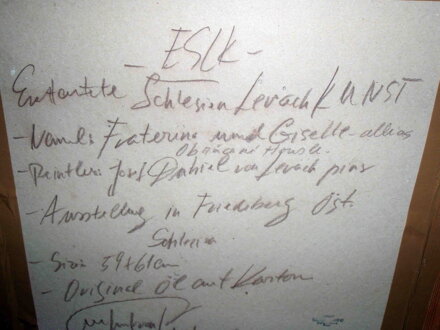 - ESLK -
Entartete Schlesien Leväch KUNST
- Namens Fraterina und Giselle - alias
- Josef Daniel von Leväch pins
- Ausstellung in Friedeberg Öst.
Schlesien
- Size 59+61cm
- Original Öl auf Karton